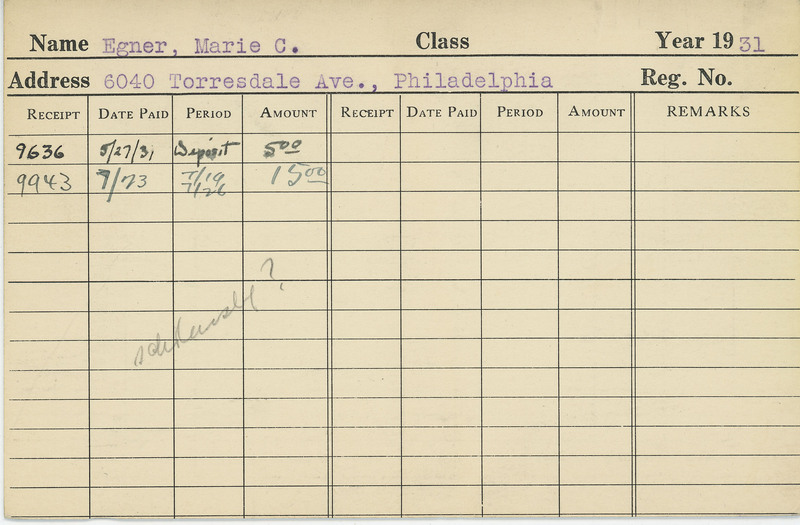 Name Egner, Marie C. Class Year 1931
Address 6040 Torresdale Ave., Philadelphia Reg. No.
RECEIPT DATE PAID PERIOD AMOUNT RECEIPT DATE PAID PERIOD AMOUNT REMARKS
9636 5/27/31 Deposit 5 00
9943 7/23 7/19 15 00
7/26
?